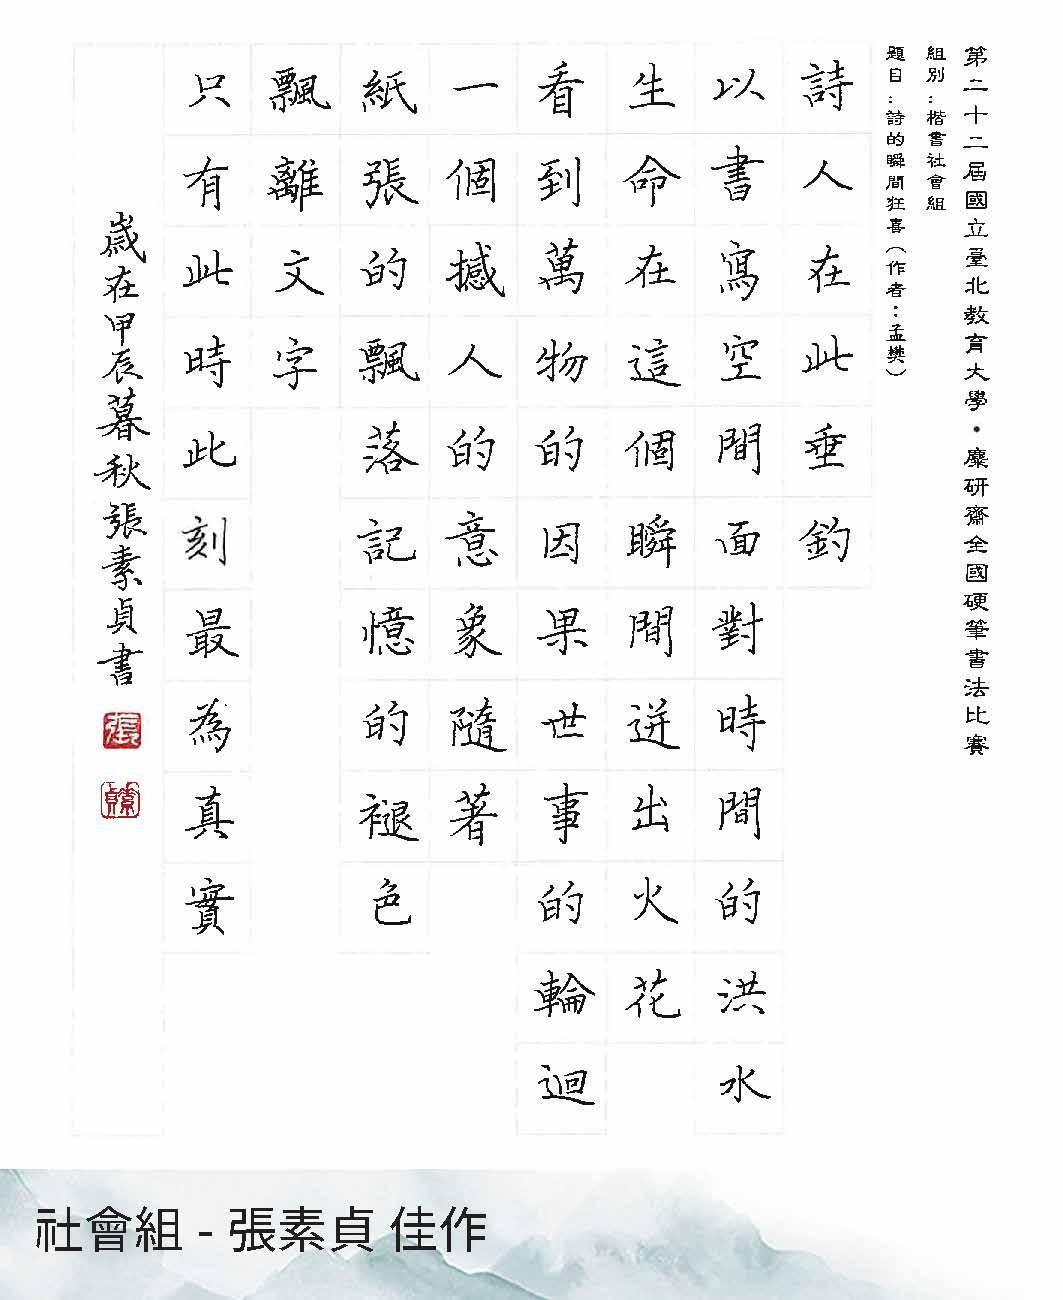 第二十二屆國立臺北教育大學・麋研齋全國硬筆書法比賽
組別：楷書社會組
題目：詩的瞬間狂喜（作者：孟樊）
詩人在此垂釣
以書寫空間面對時間的洪水
生命在這個瞬間迸出火花
看到萬物的因果世事的輪迴
一個撼人的意象隨著
紙張的飄落記憶的褪色
飄離文字
只有此時此刻最為真實
歲在甲辰暮秋張素貞書
張
素貞
社會組 - 張素貞 佳作